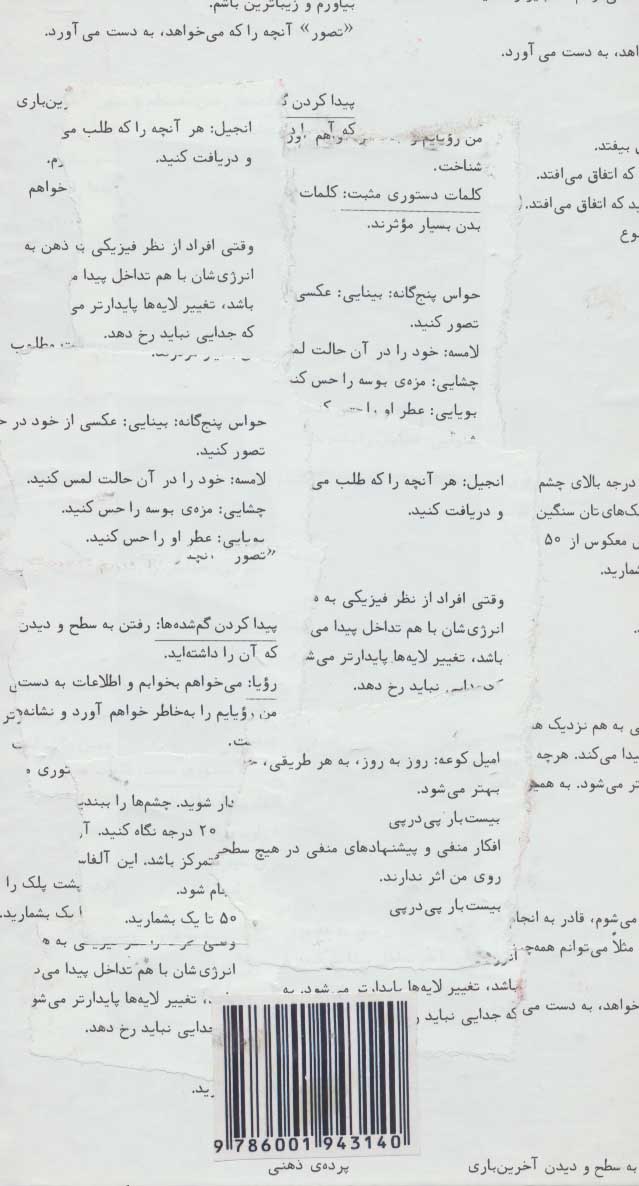 بیاورم و زیباترین باشم.
«تصور» آنچه را که می‌خواهد، به دست می آورد.
اهد، به دست می آورد.
پیدا کردن
رین‌باری
انجیل: هر آنچه را که طلب می
و دریافت کنید.
خواهم
من رؤیایم
شناخت.
کلمات دستوری مثبت: کلمات
بدن بسیار مؤثرند.
بیفتد.
که اتفاق می‌افتد.
ید که اتفاق می‌افتد.
وع
وقتی افراد از نظر فیزیکی ذهن به
انرژی‌شان با هم تداخل پیدا م
باشد، تغییر لایه‌ها پایدارتر می
که جدایی نباید رخ دهد.
مطلوب
حواس پنج‌گانه: بینایی: عکسی
تصور کنید.
لامسه: خود را در آن حالت لم
چشایی: مزه‌ی بوسه را حس کن
بویایی: عطر او را
حواس پنج‌گانه: بینایی: عکسی از خود در ح
تصور کنید.
لامسه: خود را در آن حالت لمس کنید.
چشایی: مزه‌ی بوسه را حس کنید.
بویایی: عطر او را حس کنید.
«تصور آنچه
انجیل: هر آنچه را که طلب می
و دریافت کنید.
درجه بالای چشم
ک‌های‌تان سنگین
معکوس از ۵۰
شمارید.
وقتی افراد از نظر فیزیکی به ه
انرژی‌شان با هم تداخل پیدا می
باشد، تغییر لایه‌ها پایدارتر می‌ش
که جدایی نباید رخ دهد.
پیدا کردن گم‌شده‌ها: رفتن به سطح و دیدن
که آن را داشته‌اید.
رؤیا: می‌خواهم بخوابم و اطلاعات به دست
من رؤیایم را به‌خاطر خواهم آورد و نشانه
ت.
ی به هم نزدیک ه
یدا می‌کند. هرچه
تر می‌شود. به همی
امیل کوعه: روز به روز، به هر طریقی،
بهتر می‌شود.
بیست‌بار پی‌درپی
افکار منفی و پیشنهادهای منفی در هیچ سطحی
روی من اثر ندارند.
بیست‌بار پی‌درپی
توری
دار شوید. چشم‌ها را ببندی
۲۰ درجه نگاه کنید. آر
متمرکز باشد. این آلفا
جام شود.
۵۰ تا یک بشمارید.
پشت پلک را
تا یک بشمارید.
می‌شوم، قادر به انجا
مثلاً می‌توانم همه‌چ
خواهد، به دست می
انرژی‌شان با هم تداخل پیدا می
تغییر لایه‌ها پایدارتر می‌شو
جدایی نباید رخ دهد.
باشد، تغییر لایه‌ها پایدارتر می‌شود. به
که جدایی نباید ر
رید.
9 786001 943140
پرده‌ی ذهنی
به سطح و دیدن آخرین‌باری